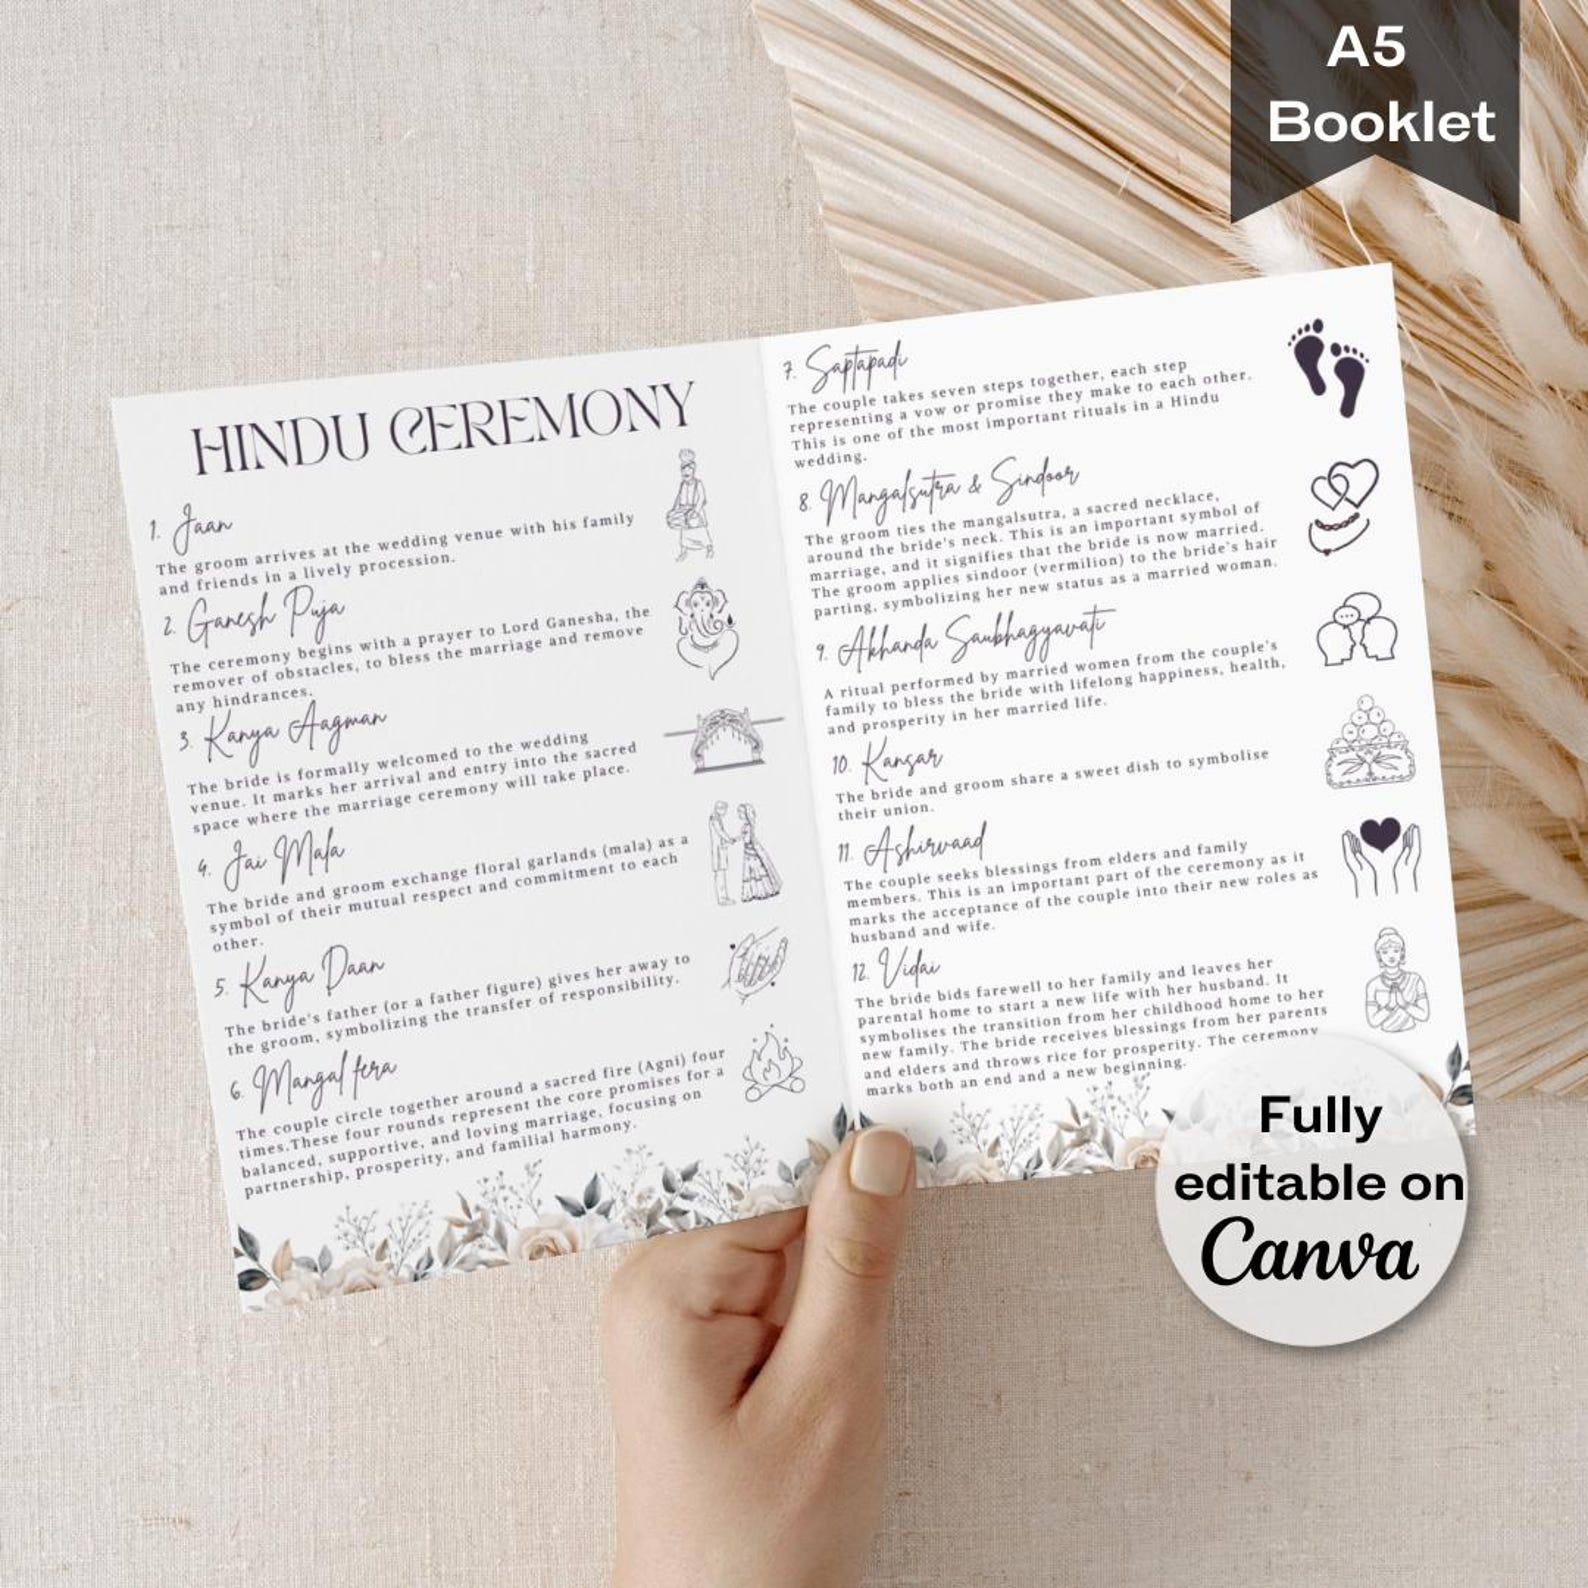 A5
Booklet
HINDU CEREMONY
1. Jaan
The groom arrives at the wedding venue with his family
and friends in a lively procession.
2. Ganesh Puja
The ceremony begins with a prayer to Lord Ganesha, the
remover of obstacles, to bless the marriage and remove
any hindrances.
3. Kanya Aagman
The bride is formally welcomed to the wedding
venue. It marks her arrival and entry into the sacred
space where the marriage ceremony will take place.
4. Jai Mala
The bride and groom exchange floral garlands (mala) as a
symbol of their mutual respect and commitment to each
other.
5. Kanya Daan
The bride's father (or a father figure) gives her away to
the groom, symbolizing the transfer of responsibility.
6. Mangal fera
The couple circle together around a sacred fire (Agni) four
times.These four rounds represent the core promises for a
balanced, supportive, and loving marriage, focusing on
partnership, prosperity, and familial harmony.
7. Saptapadi
The couple takes seven steps together, each step
representing a vow or promise they make to each other.
This is one of the most important rituals in a Hindu
wedding.
8. Mangalsutra & Sindoor
The groom ties the mangalsutra, a sacred necklace,
around the bride's neck. This is an important symbol of
marriage, and it signifies that the bride is now married.
The groom applies sindoor (vermilion) to the bride's hair
parting, symbolizing her new status as a married woman.
9. Akhanda Saubhagyavati
A ritual performed by married women from the couple's
family to bless the bride with lifelong happiness, health,
and prosperity in her married life.
10. Kansar
The bride and groom share a sweet dish to symbolise
their union.
11. Ashirvaad
The couple seeks blessings from elders and family
members. This is an important part of the ceremony as it
marks the acceptance of the couple into their new roles as
husband and wife.
12. Vidai
The bride bids farewell to her family and leaves her
parental home to start a new life with her husband. It
symbolises the transition from her childhood home to her
new family. The bride receives blessings from her parents
and elders and throws rice for prosperity. The ceremony
marks both an end and a new beginning.
Fully
editable on
Canva